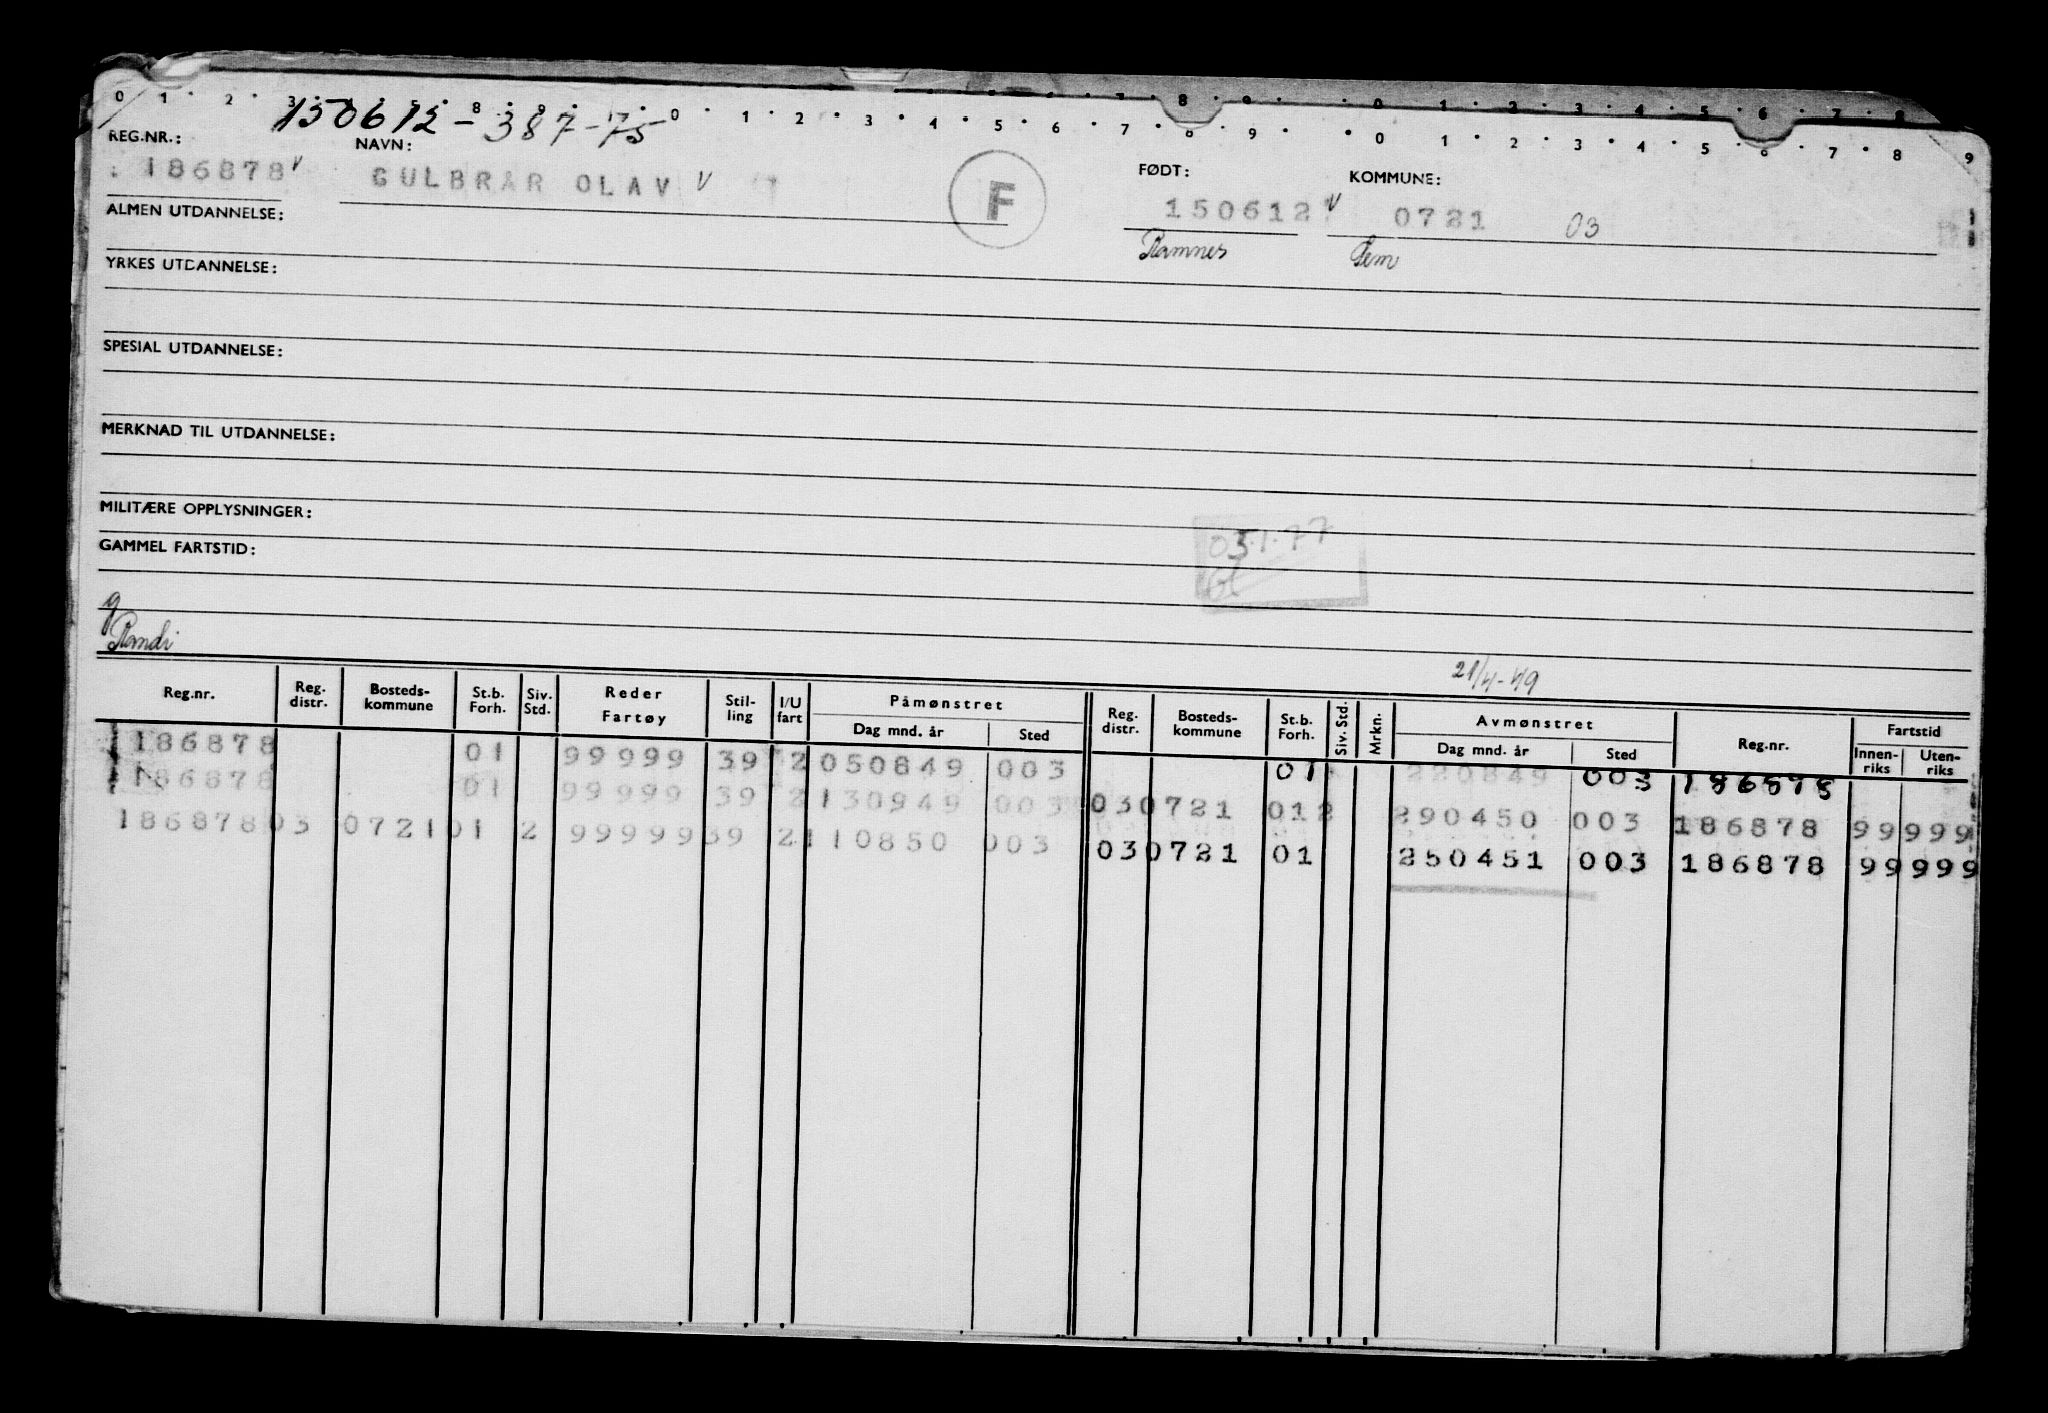 0 1 2 3 8 9 0 1 2 3 4 5 6 7 8 9 0 1 2 3 4 5 6 7 8 9
150612-387-75
REG.NR.: NAVN: FØDT: KOMMUNE:
186878 V GULBRAR OLAV V F 150612 V 0721 03
ALMEN UTDANNELSE: Ramnes Sem
YRKES UTDANNELSE:
SPESIAL UTDANNELSE:
MERKNAD TIL UTDANNELSE:
MILITÆRE OPPLYSNINGER:
GAMMEL FARTSTID: 05.1.77
g
Randi
21/4-49
Reg.nr. Reg. distr. Bosteds-kommune St.b. Forh. Siv. Std. Reder Fartøy Stil-ling I/U fart Påmønstret Dag mnd. år Sted Reg. distr. Bosteds-kommune St.b. Forh. Siv. Std. Mrkn. Avmønstret Dag mnd. år Sted Reg.nr. Fartstid Innen-riks Uten-riks
186878 01 99999 39 2 050849 003 01 220849 003 186878
186878 01 99999 39 2 130949 003 03 0721 01 2 290450 003 186878 99999
186878 03 0721 01 2 99999 39 2 110850 003 03 0721 01 250451 003 186878 99999